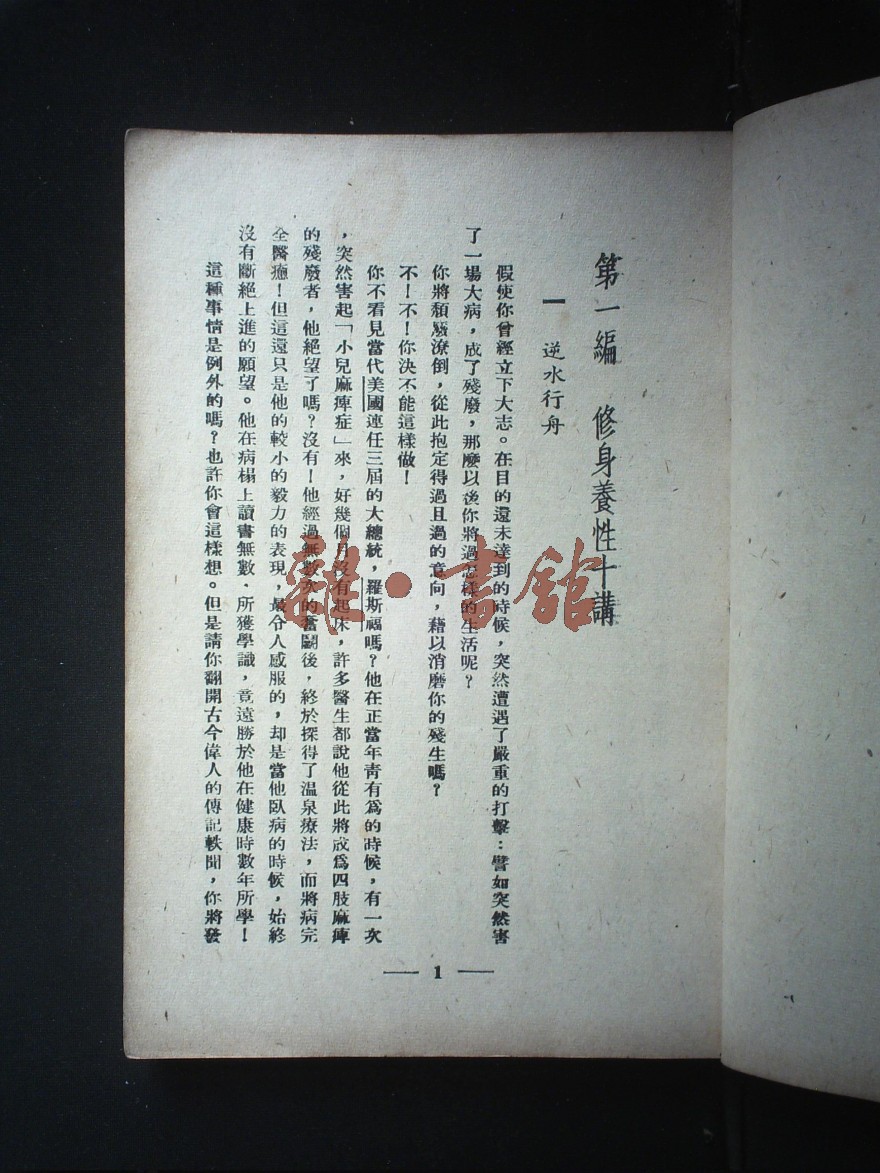 第一編　修身養性十講
一　逆水行舟
假使你曾經立下大志。在目的還未達到的時候，突然遭遇了嚴重的打擊：譬如突然害
了一場大病，成了殘廢，那麼以後你將過怎樣的生活呢？
你將頹廢潦倒，從此抱定得過且過的意向，藉以消磨你的殘生嗎？
不！不！你決不能這樣做！
你不看見當代美國連任三屆的大總統，羅斯福嗎？他在正當年靑有爲的時候，有一次
，突然害起「小兒麻痺症」來，好幾個月沒有起床，許多醫生都說他從此將成爲四肢麻痺
的殘廢者，他絕望了嗎？沒有！他經過無數次的奮鬭後，終於探得了温泉療法，而將病完
全醫癒！但這還只是他的較小的毅力的表現，最令人感服的，却是當他臥病的時候，始終
沒有斷絕上進的願望。他在病榻上讀書無數．所獲學識，竟遠勝於他在健康時數年所學！
這種事情是例外的嗎？也許你會這樣想。但是請你翻開古今偉人的傳記軼聞，你將發
— 1 —
雜·書館